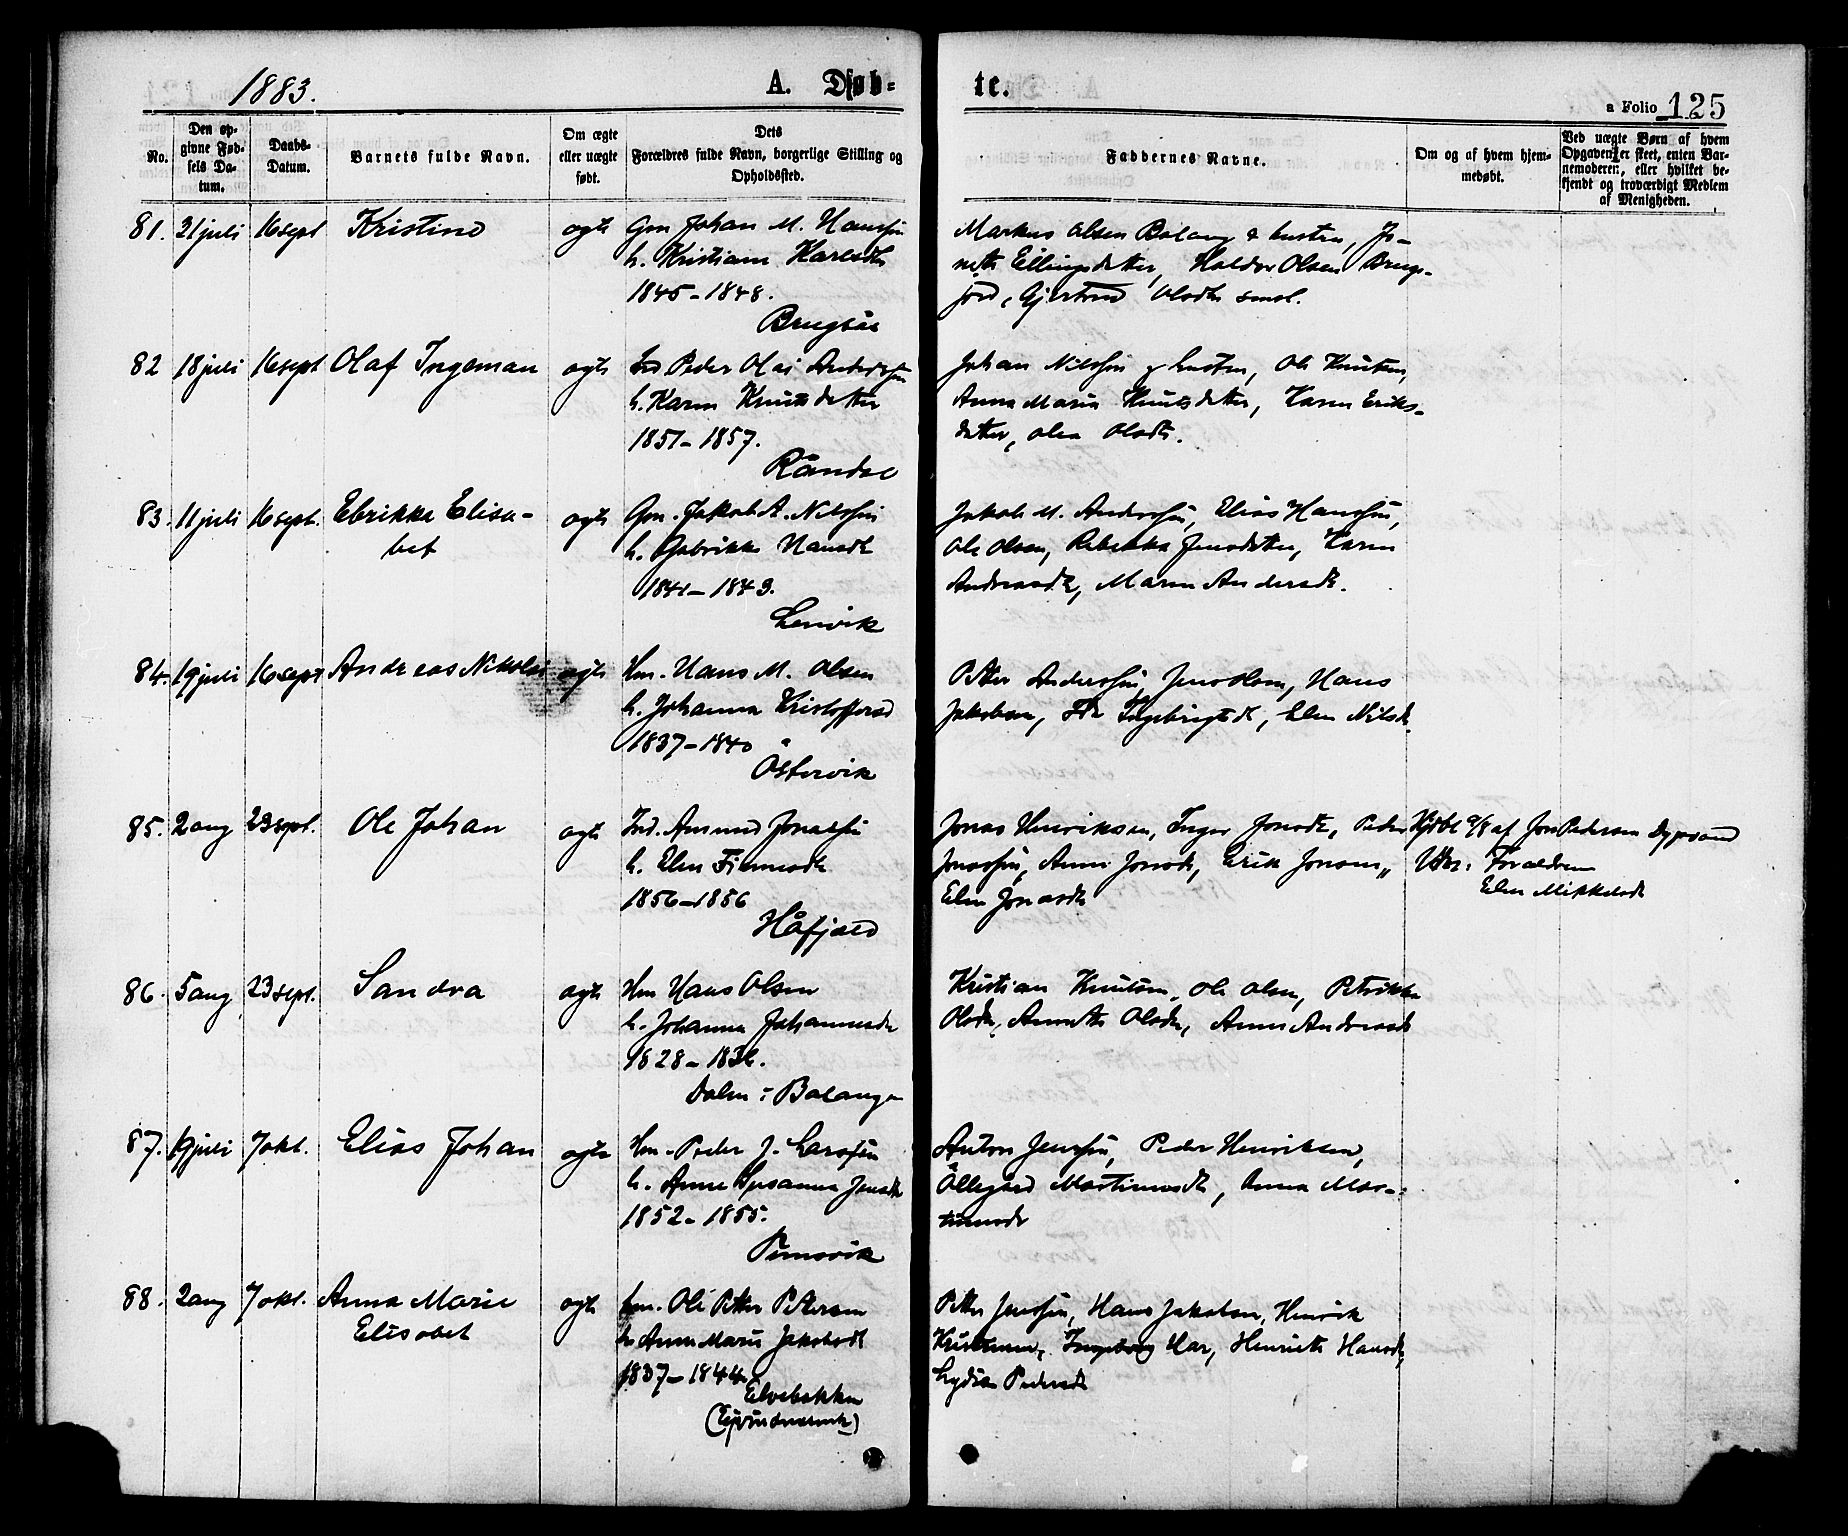 1883.
A. Døb-
te.
a Folio 125
No.
Den op-
givne Fød-
sels Da-
tum.
Daabs-
Datum.
Barnets fulde Navn.
Om ægte
eller uægte
født.
Dets
Forældres fulde Navn, borgerlige Stilling og
Opholdssted.
Faddernes Navne.
Om og af hvem hjem-
medøbt.
Ved uægte Børn af hvem
Opgaven er skeet, enten Bar-
nemoderen, eller hvilket be-
kjendt og troværdigt Medlem
af Menigheden.
81. 21 juli 16 sept Kristine ægte Gm Johan M. Hanssen
h. Kristiane Karlsdtr
1845-1848.
Markus Olsen Balang & hustru,
Ellingsdatter, Haldor Olsen
Olsdtr smst.
82 18 juli 16 sept Olaf Ingeman ægte Peder Olai
h. Karen Knutsdatter
1851-1857.
Råndal
Johan Nilssen & hustru, Ole Knutsen,
Anna Maria Knutsdatter, Karen Eriks-
datter, Olsdtr.
83. 11 juli 16 sept. Ebrikke Elisa-
bet
ægte Gm. Jakob A. Nilssen
h. Hansdtr
1841-1849.
Lenvik
Jakob M. Anderssen, Elias Hanssen,
Ole Olsen, Rebekka Jensdatter, Karen
Andreasdtr, Maren Andersdtr.
84. 19 juli 16 sept Andreas Nikolai ægte Hm. Hans M. Olsen
h. Johanna Kristoffersd
1837-1840
Østervik
Petter Anderssen, Jens Olsen, Hans
Jakobsen, Ingebrigtsdtr, Elen Nilsdtr
85. 2 aug 23 sept. Ole Johan ægte Ind. Amund Jonassen
h. Elen
1856-1856
Håfjæld
Jonas Henriksen, Inger Jonsdtr, Peder
Jonassen, Anne Jonsdtr, Erik Jonsen,
Elen Jonasdtr
Hjdbt 9/8 af Jon Pedersen Dypsand
Vidn: Forældrene
Elen Mikkelsdtr
86. 5 aug 23 sept. Sandra ægte Hm Hans Olsen
h. Johanna Johannesdtr
1828-
i Balangen
Kristian Knutsen, Ole Olsen, Petrikke
Olsdtr, Annette Olsdtr, Anne Andreasdtr
87. 19 juli 7 okt. Elias Johan ægte Hm. Peder J. Larssen
h. Anne Susanna Jensdtr
1852-1855.
Anton Jenssen, Peder Henriksen,
Ollegård Martinusdtr, Anna Mar-
tinusdtr
88. 2 aug 7 okt. Anna Marie
Elisabet
ægte Ole Petter Petersen
h. Anne Marie Jakobsdtr
1837-1844
Elvebakken
Petter Jenssen, Hans Jakobsen, Henrik
Kristensen, Ingeborg Har, Henriette Hansdtr,
Lydia Pedersdtr